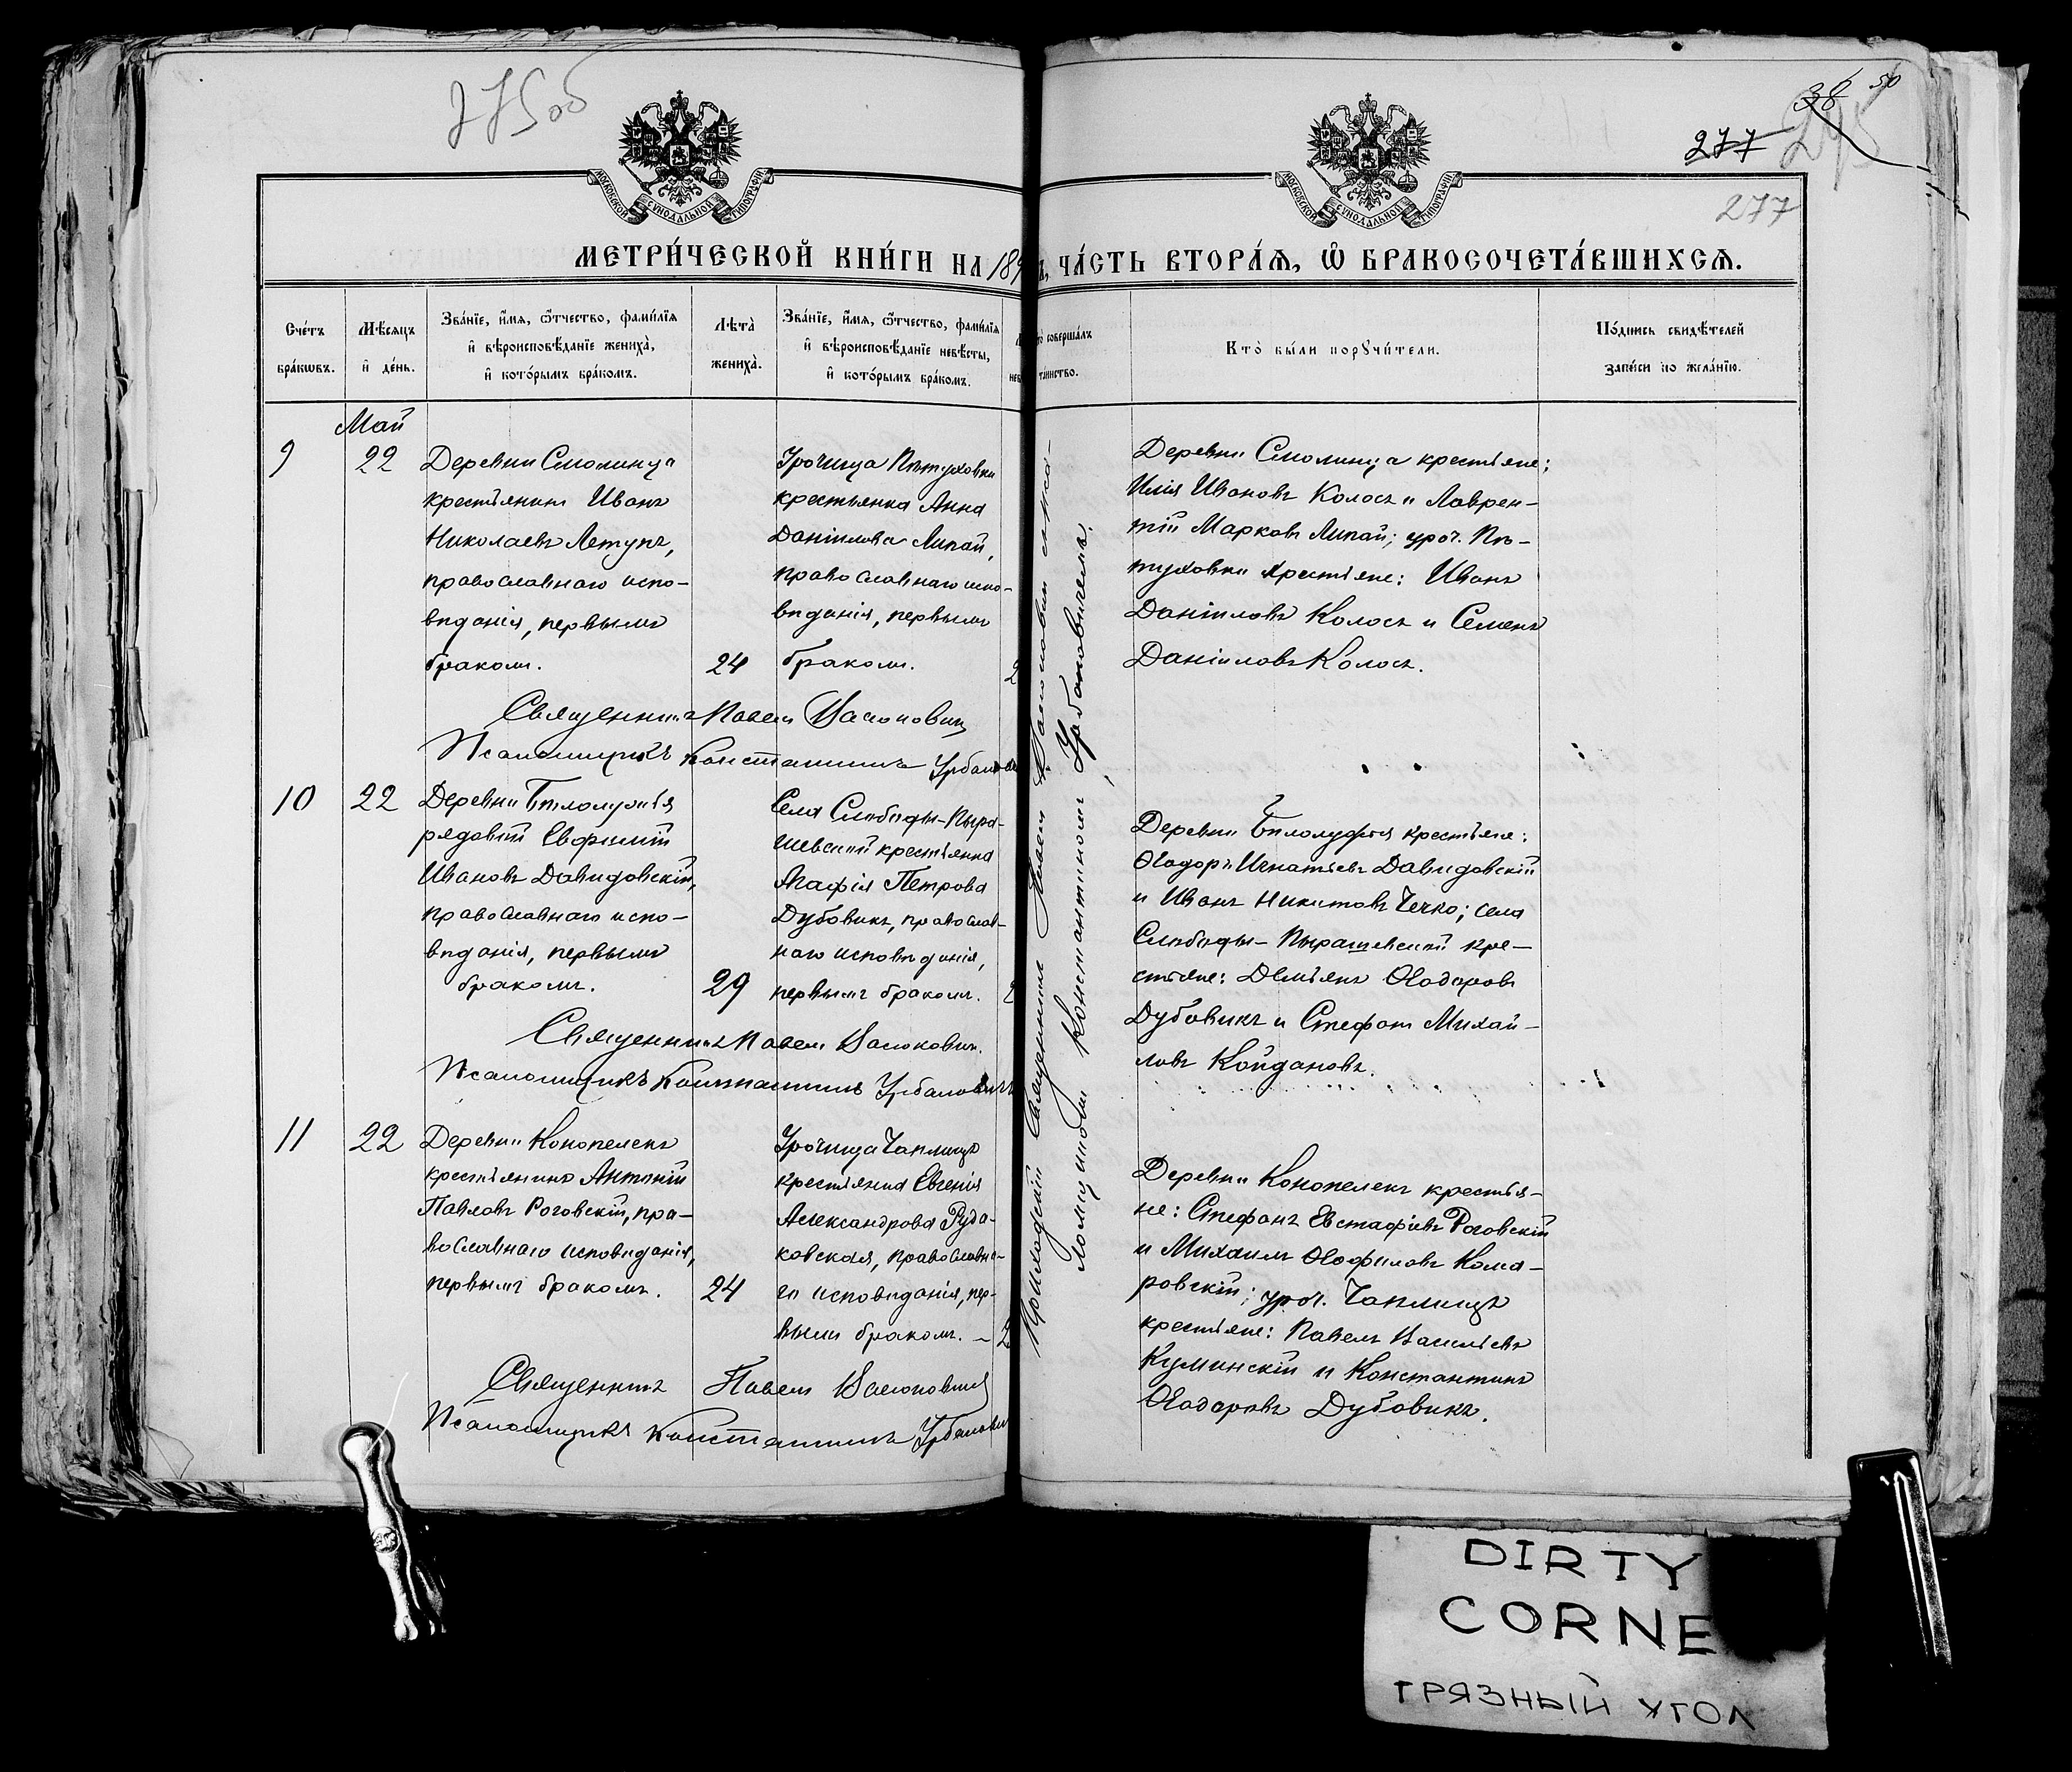 275 об
38 50
277 295
277
МОСКОВСКОЙ СѴНОДАЛЬНОЙ ТИПОГРАФІИ
МОСКОВСКОЙ СѴНОДАЛЬНОЙ ТИПОГРАФІИ
МЕТРИ́ЧЕСКОЙ КНИ́ГИ НА 189
ЧА́СТЬ ВТОРА́Ѧ, Ѡ БРАКОСОЧЕТА́ВШИХСѦ.
Сче́тъ бра́кѡвъ.
Мѣ́сяцъ и҆ де́нь.
Зва́нїе, и҆́мя, ѻ҆́тчество, фами́лїя
и҆ вѣроисповѣ́данїе жениха̀,
и҆ кото́рымъ бра́комъ.
Лѣта̀ жениха̀.
Зва́нїе, и҆́мя, ѻ҆́тчество, фами́лїя
и҆ вѣроисповѣ́данїе невѣ́сты,
и҆ кото́рымъ бра́комъ.
соверша́лъ
та́инство.
Кто̀ бы́ли порꙋчи́тели.
По́дпись свидѣ́телей
за́писи по жела́нїю.
Май
9
22
Деревни Смолинца
крестьянинъ Иванъ
Николаевъ Летунъ,
православнаго испо-
вѣданія, первымъ
бракомъ.
24
Урочища Пѣтуховки
крестьянка Анна
Даніилова Липай,
православнаго испо-
вѣданія, первымъ
бракомъ.
2
Деревни Смолинца крестьяне:
Илія Ивановъ Колосъ и Лаврен-
тій Марковъ Липай; уроч. Пѣ-
туховки крестьяне: Иванъ
Даніиловъ Колосъ и Семенъ
Даніиловъ Колосъ.
Священникъ Павелъ
Псаломщикъ Константинъ
10
22
Деревни Бѣлолужья
рядовой Евфимій
Ивановъ Давидовскій,
православнаго испо-
вѣданія, первымъ
бракомъ.
29
Села Слободы-Пыра-
шевской крестьянка
Агафія Петрова
Дубовикъ, православ-
наго исповѣданія,
первымъ бракомъ.
2
Деревни Бѣлолужья крестьяне:
Ѳеодоръ Игнатьевъ Давидовскій
и Иванъ Никитовъ Чечко; села
Слободы-Пырашевской кре-
стьяне: Демьянъ Ѳеодоровъ
Дубовикъ и Стефанъ Михай-
ловъ Койдановъ.
Священникъ Павелъ
Псаломщикъ Константинъ Урбановичъ
11
22
Деревни Конопелекъ
крестьянинъ Антоній
Павловъ Роговскій, пра-
вославнаго исповѣданія,
первымъ бракомъ.
24
Урочища Чаплицъ
крестьянка Евгенія
Александрова Руда-
ковская, православна-
го исповѣданія, пер-
вымъ бракомъ.
2
Деревни Конопелекъ крестья-
не: Стефанъ Евстафіевъ Роговскій
и Михаилъ Ѳеофиловъ Кома-
ровскій; уроч. Чаплицъ
крестьяне: Павелъ Васильевъ
Куминскій и Константинъ
Ѳеодоровъ Дубовикъ.
Священникъ Павелъ
Псаломщикъ Константинъ
Приходскій священникъ Павелъ
Константиномъ Урбановичемъ.
DIRTY
CORNE
ГРЯЗНЫЙ УГОЛ